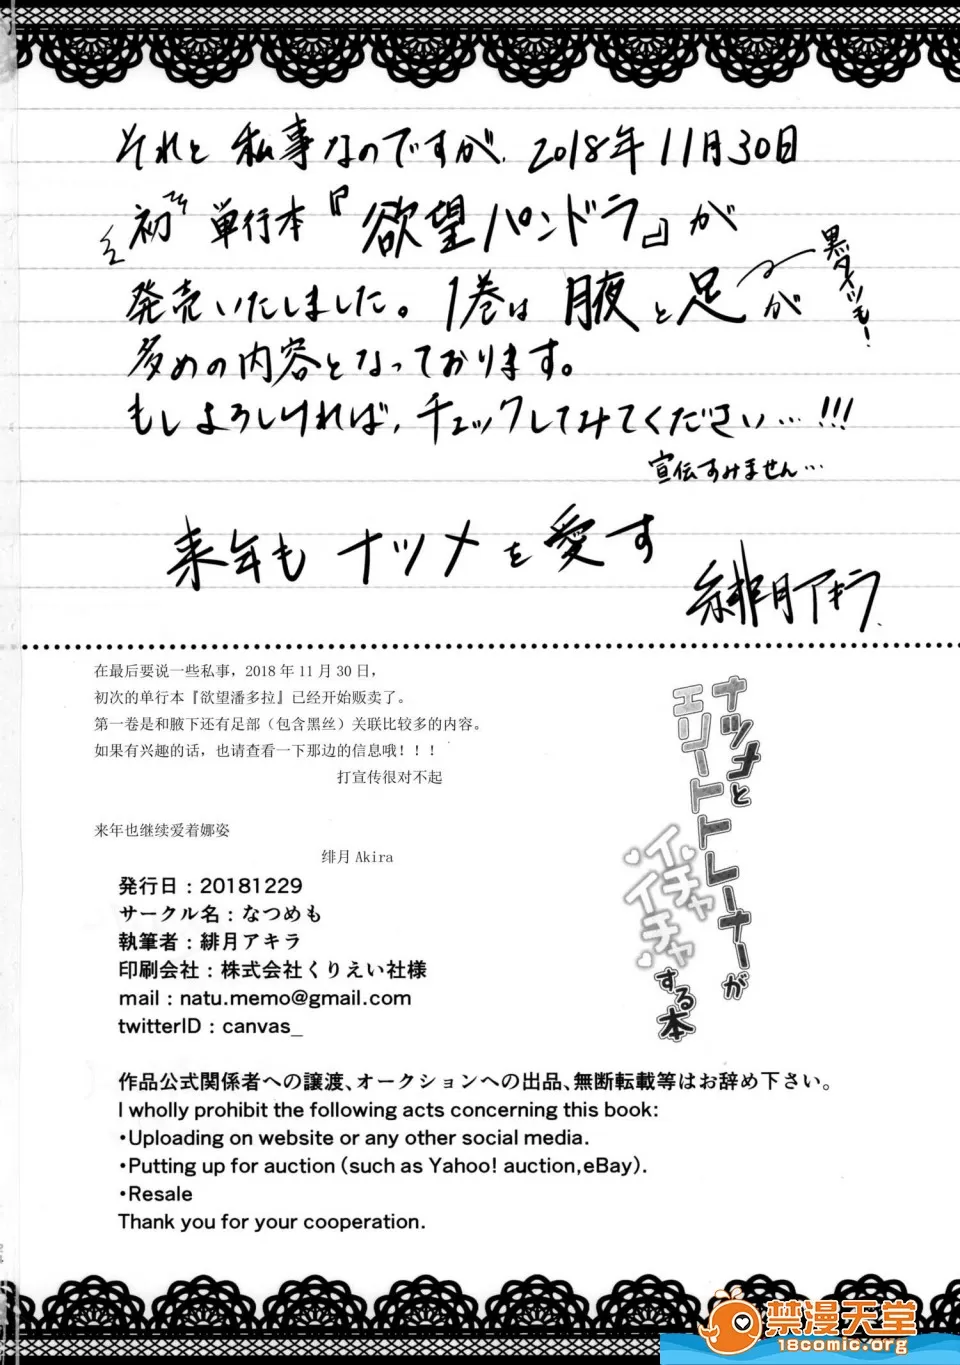 それと 私事なのですが、2018年11月30日
初 単行本『欲望パンドラ』が
発売いたしました。1巻は 腋と足が
黒タイツも!
多めの内容となっております。
もしよろしければ、チェックしてみてください…!!!
宣伝すみません…
来年も ナツメを愛す
緋月アキラ
在最后要说一些私事，2018 年 11 月 30 日，
初次的单行本『欲望潘多拉』已经开始贩卖了。
第一卷是和腋下还有足部（包含黑丝）关联比较多的内容。
如果有兴趣的话，也请查看一下那边的信息哦！！！
打宣传很对不起
来年也继续爱着娜姿
绯月 Akira
ナツメと
エリートトレーナーが
イチャ
イチャ
する本
発行日：20181229
サークル名：なつめも
執筆者：緋月アキラ
印刷会社：株式会社くりえい社様
mail：natu.memo@gmail.com
twitterID：canvas_
作品公式関係者への譲渡、オークションへの出品、無断転載等はお辞め下さい。
I wholly prohibit the following acts concerning this book:
・Uploading on website or any other social media.
・Putting up for auction (such as Yahoo! auction,eBay).
・Resale
Thank you for your cooperation.
禁漫天堂
18comic.org